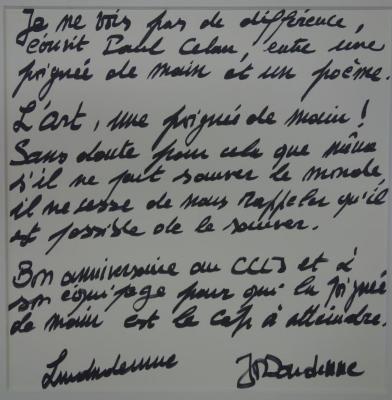 Je ne vois pas de différence,
écrit Paul Celan, entre une
poignée de main et un poème.
L'art, une poignée de main !
Sans doute pour cela que même
s'il ne peut sauver le monde,
il ne cesse de nous rappeler qu'il
est possible de le sauver.
Bon anniversaire au CCLJ et à
son équipage pour qui la poignée
de main est le cap à atteindre.